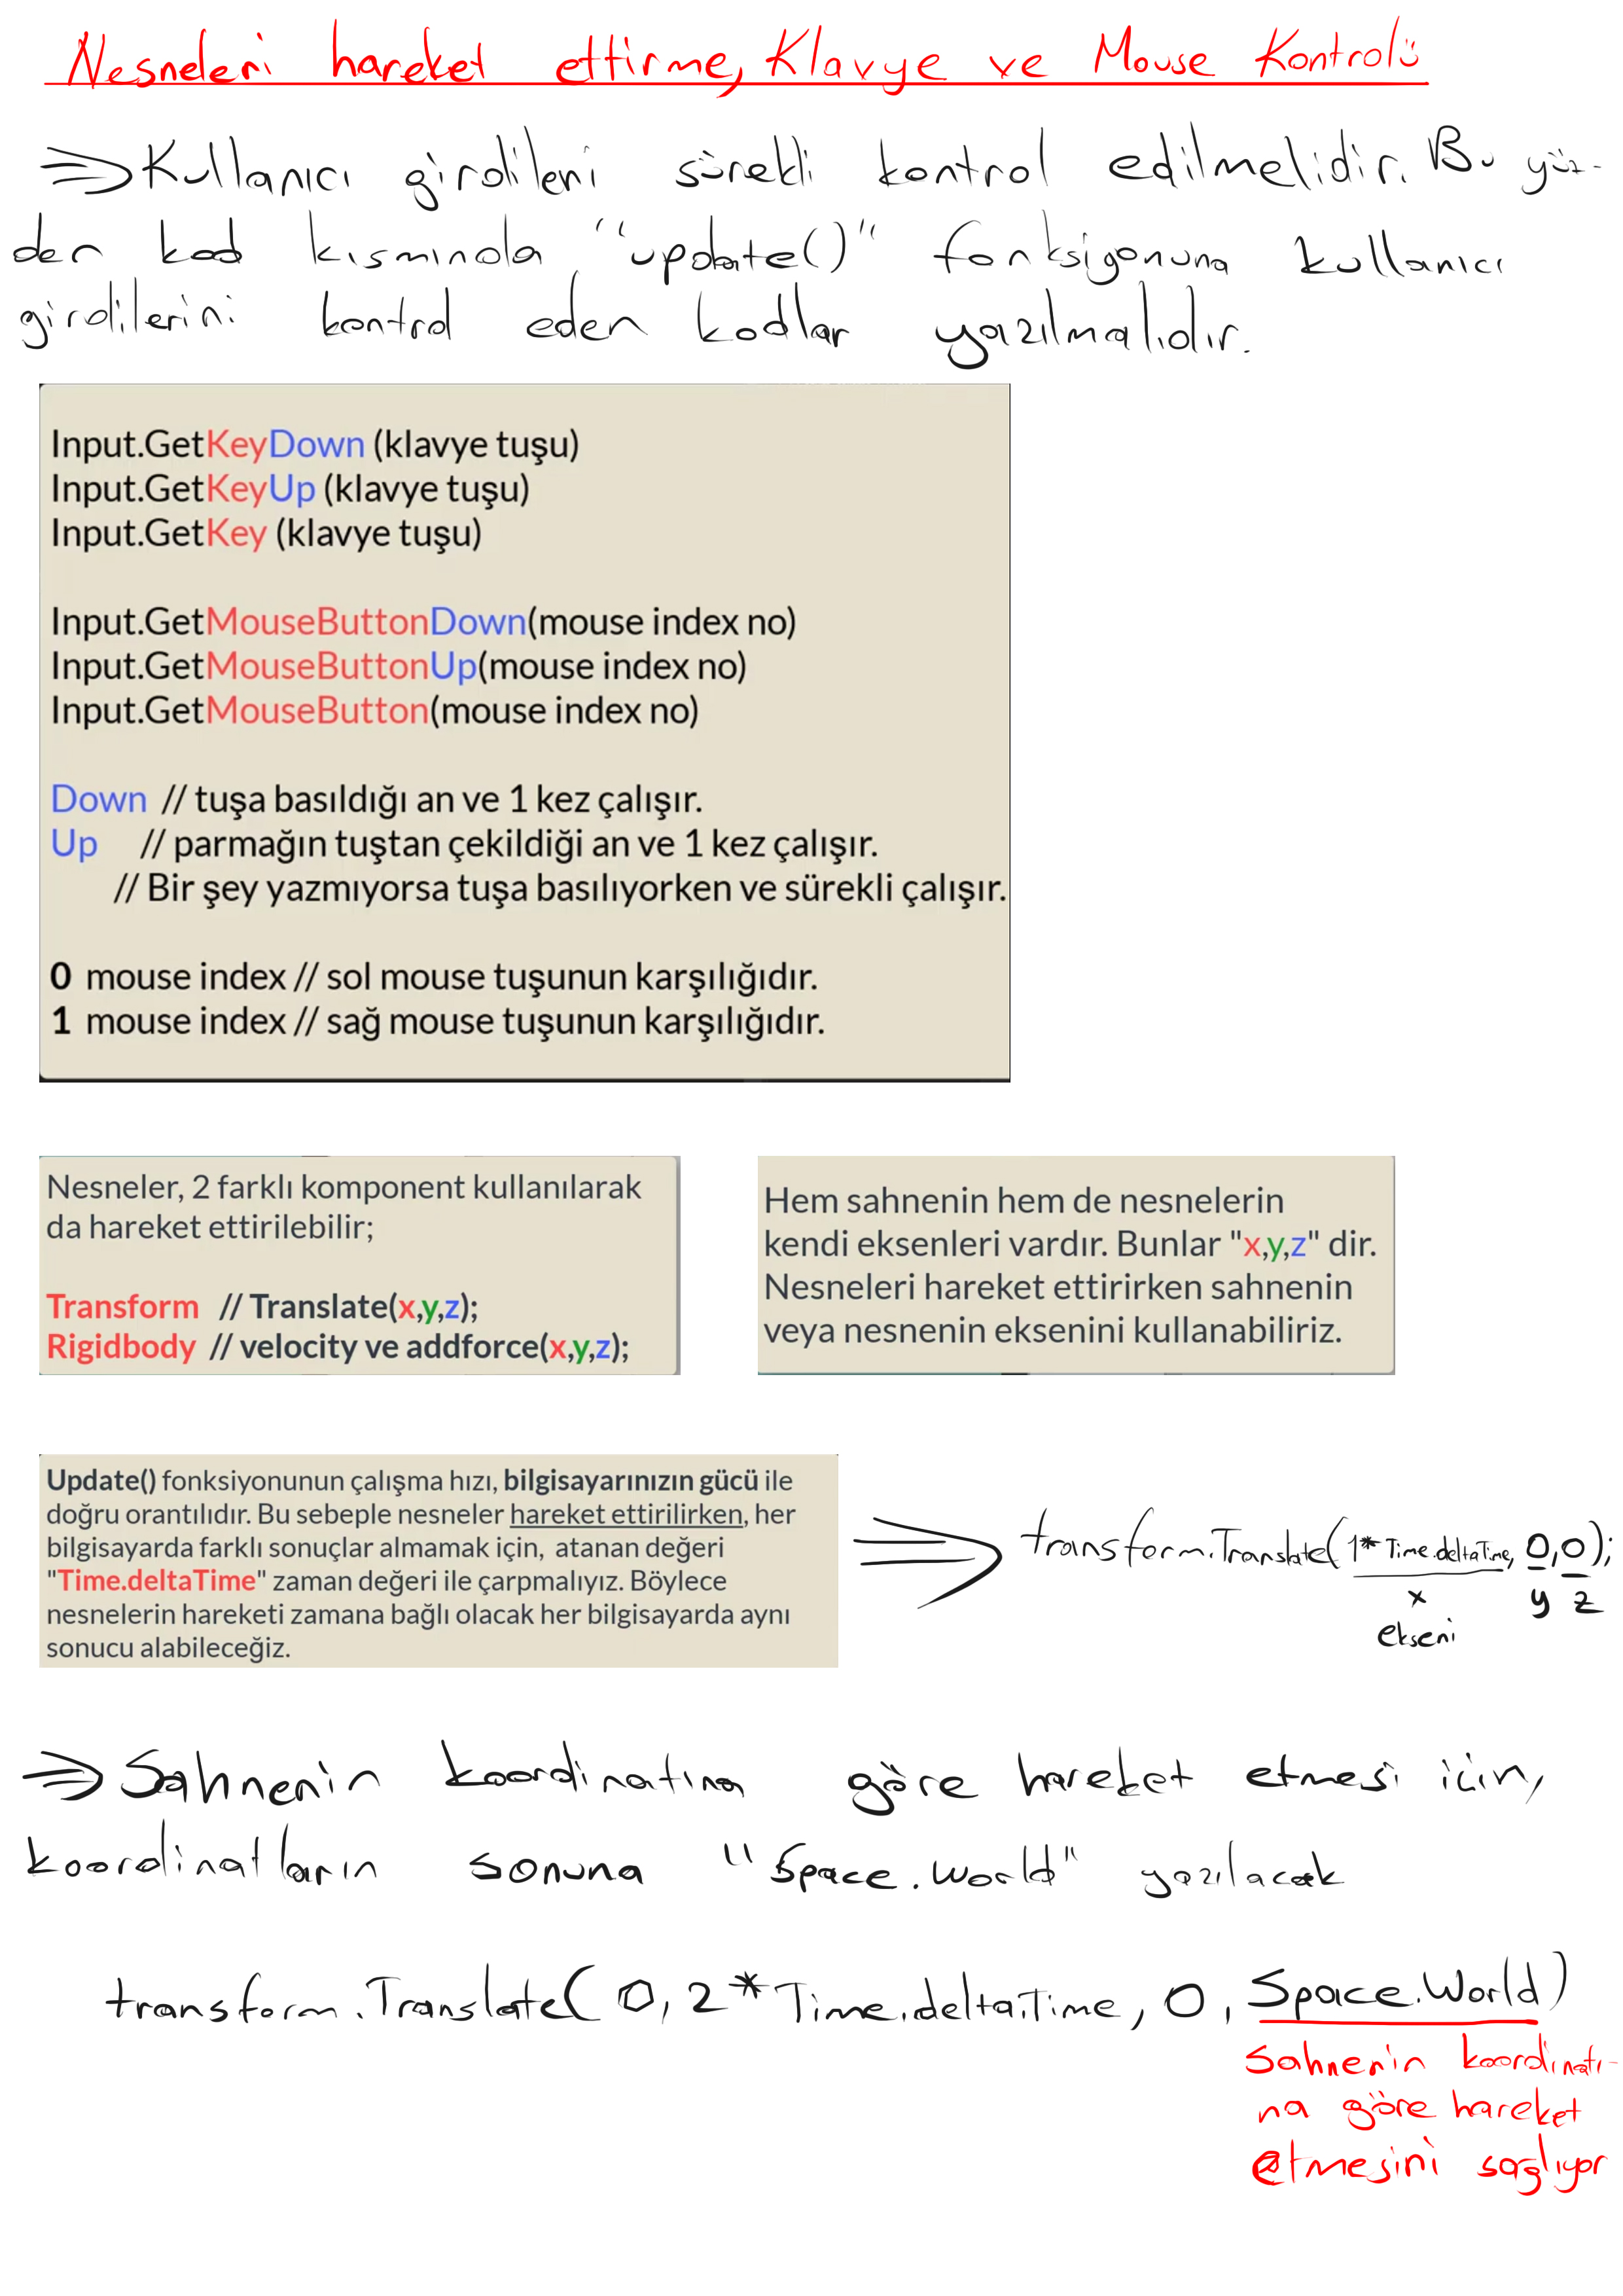 Nesneleri hareket ettirme, Klavye ve Mouse Kontrolü
⇒ Kullanıcı girdileri sürekli kontrol edilmelidir. Bu yüz-
den kod kısmında "update()" fonksiyonuna kullanıcı
girdilerini kontrol eden kodlar yazılmalıdır.
Input.GetKeyDown (klavye tuşu)
Input.GetKeyUp (klavye tuşu)
Input.GetKey (klavye tuşu)
Input.GetMouseButtonDown(mouse index no)
Input.GetMouseButtonUp(mouse index no)
Input.GetMouseButton(mouse index no)
Down // tuşa basıldığı an ve 1 kez çalışır.
Up // parmağın tuştan çekildiği an ve 1 kez çalışır.
// Bir şey yazmıyorsa tuşa basılıyorken ve sürekli çalışır.
0 mouse index // sol mouse tuşunun karşılığıdır.
1 mouse index // sağ mouse tuşunun karşılığıdır.
Nesneler, 2 farklı komponent kullanılarak
da hareket ettirilebilir;
Transform // Translate(x,y,z);
Rigidbody // velocity ve addforce(x,y,z);
Hem sahnenin hem de nesnelerin
kendi eksenleri vardır. Bunlar "x,y,z" dir.
Nesneleri hareket ettirirken sahnenin
veya nesnenin eksenini kullanabiliriz.
Update() fonksiyonunun çalışma hızı, bilgisayarınızın gücü ile
doğru orantılıdır. Bu sebeple nesneler hareket ettirilirken, her
bilgisayarda farklı sonuçlar almamak için, atanan değeri
"Time.deltaTime" zaman değeri ile çarpmalıyız. Böylece
nesnelerin hareketi zamana bağlı olacak her bilgisayarda aynı
sonucu alabileceğiz.
⇒ transform.Translate(1*Time.deltaTime, 0,0);
x y z
ekseni
⇒ Sahnenin koordinatına göre hareket etmesi için,
koordinatların sonuna "Space.World" yazılacak
transform.Translate(0, 2*Time.deltaTime, 0, Space.World)
Sahnenin koordinatı-
na göre hareket
etmesini sağlıyor